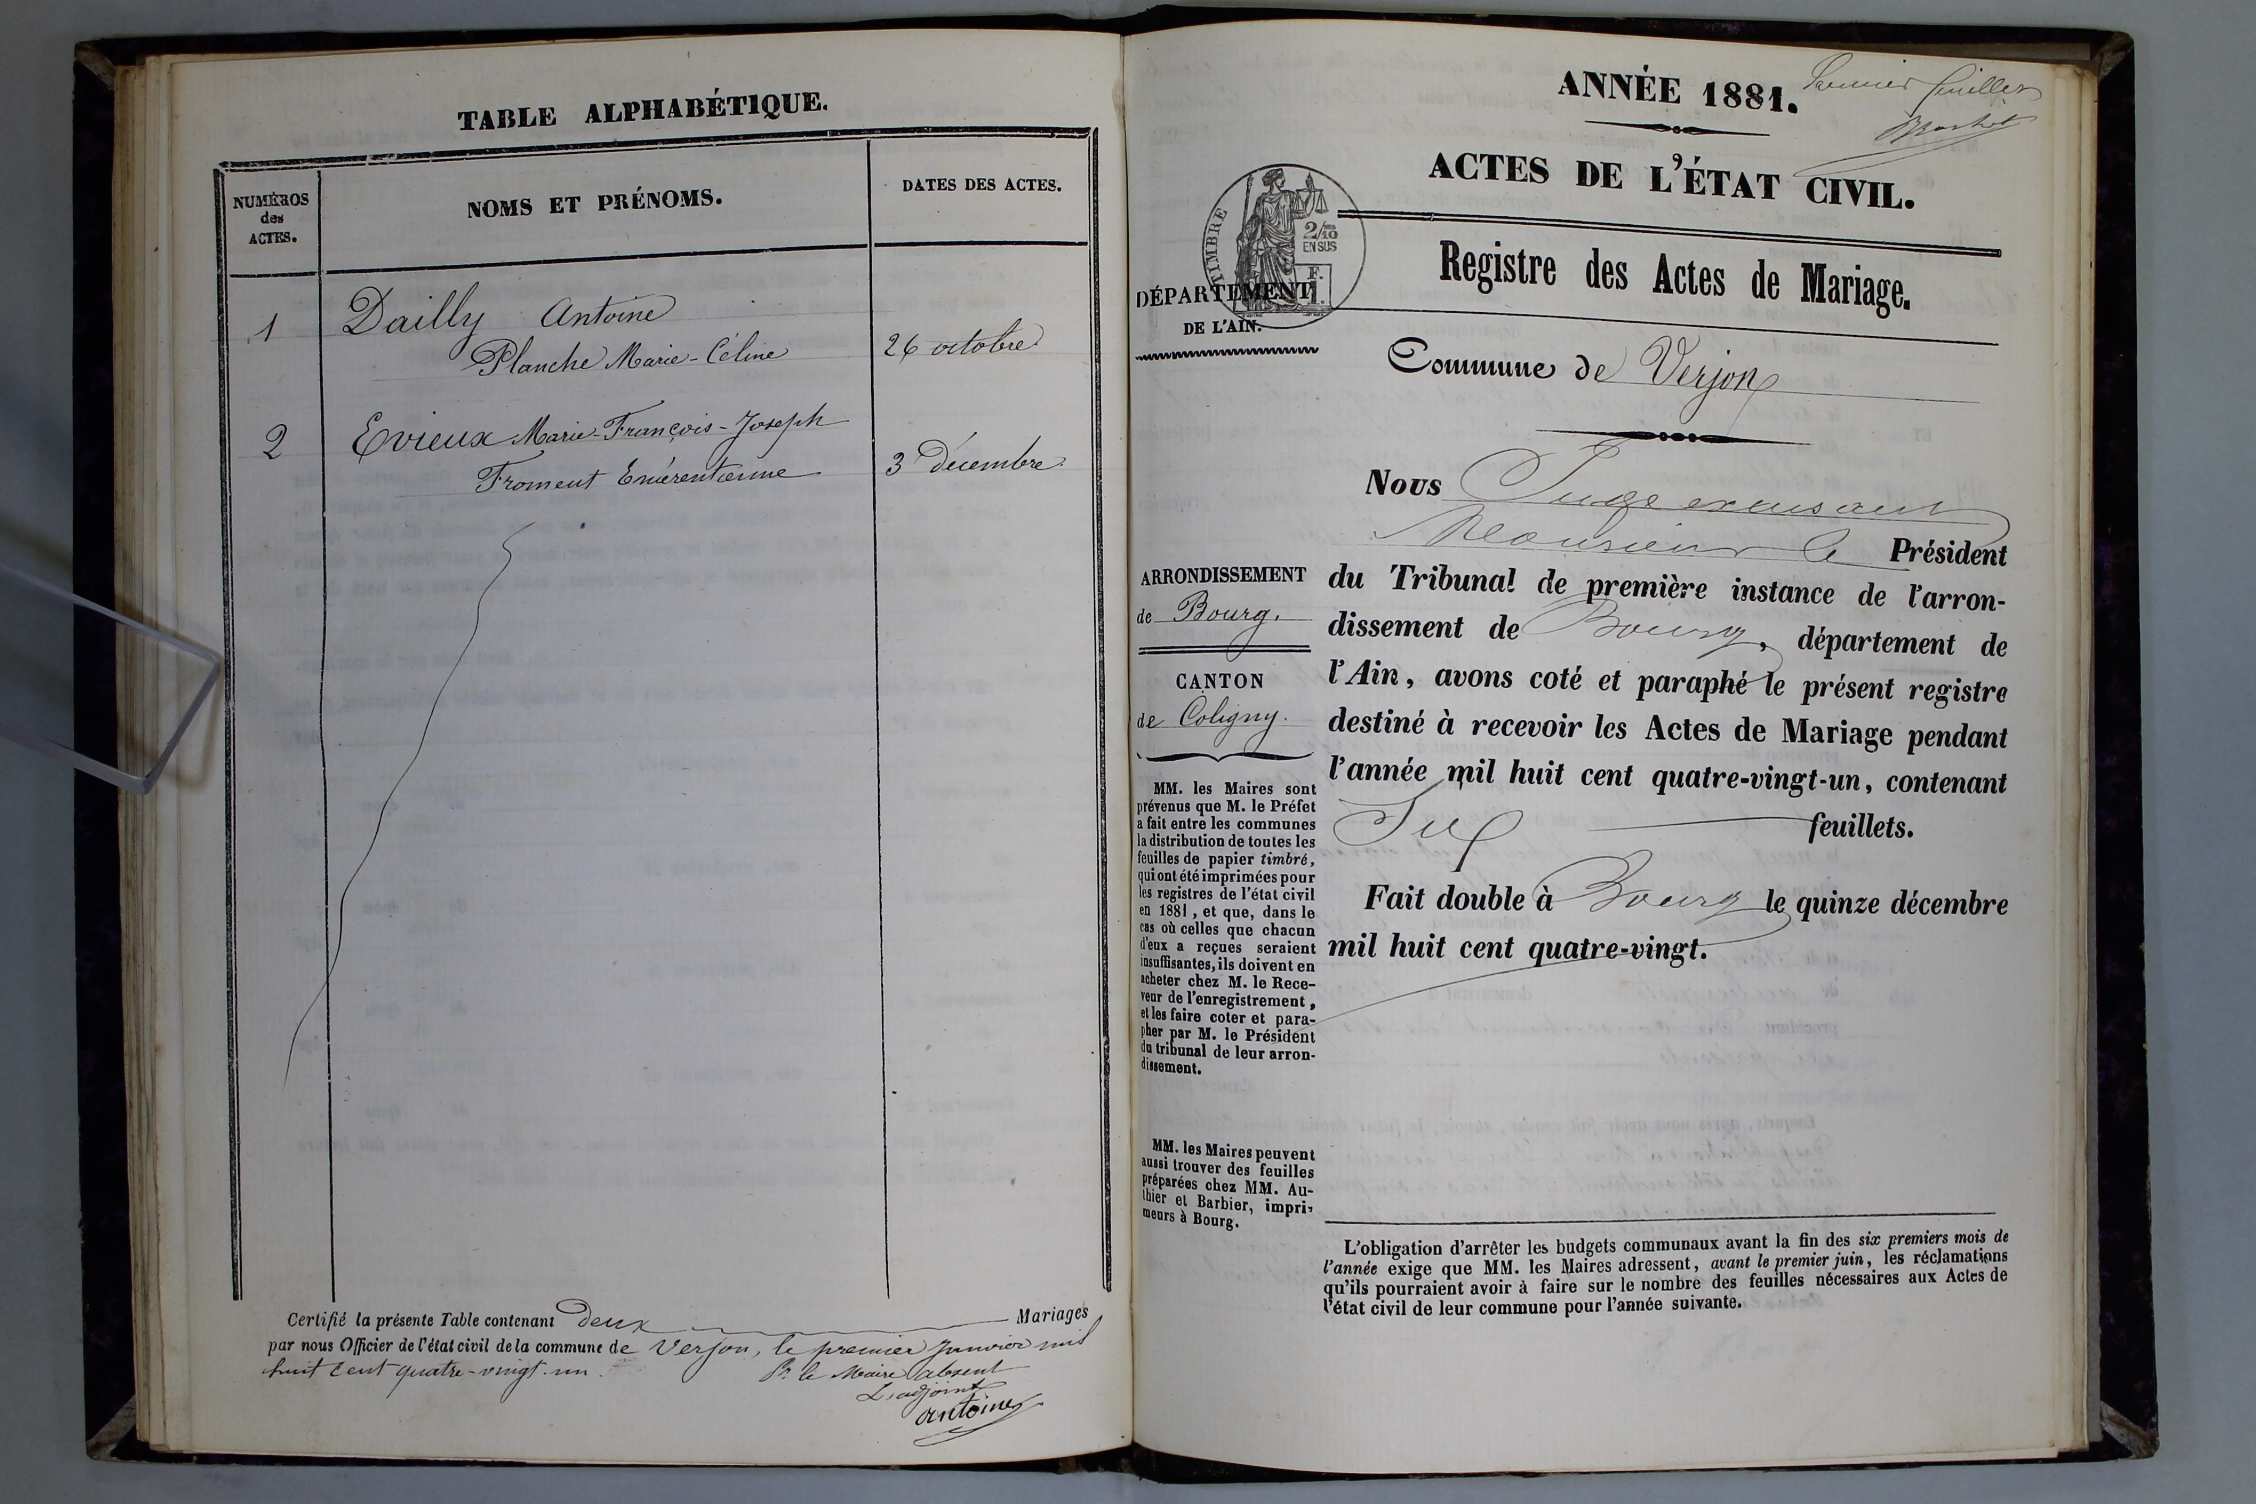 TABLE ALPHABÉTIQUE.
NUMÉROS
des
ACTES.
NOMS ET PRÉNOMS.
DATES DES ACTES.
1
Dailly Antoine
Planche Marie-Céline
26 octobre
2
Evieux Marie-François-Joseph
Froment Emérentienne
3 Décembre
Certifié la présente Table contenant deux Mariages
par nous Officier de l'état civil de la commune de Verjon, le premier Janvier mil
huit cent quatre-vingt-un.
Pr. le Maire absent
L'adjoint
Antoine
ANNÉE 1881.
Premier feuillet
ACTES DE L'ÉTAT CIVIL.
TIMBRE
2/10
EN SUS
F.
1.
DÉPARTEMENT
DE L'AIN.
Registre des Actes de Mariage.
Commune de Verjon
Nous Juge
Monsieur le Président
du Tribunal de première instance de l'arron-
dissement de Bourg, département de
l'Ain, avons coté et paraphé le présent registre
destiné à recevoir les Actes de Mariage pendant
l'année mil huit cent quatre-vingt-un, contenant
Six feuillets.
Fait double à Bourg le quinze décembre
mil huit cent quatre-vingt.
ARRONDISSEMENT
de Bourg.
CANTON
de Coligny.
MM. les Maires sont
prévenus que M. le Préfet
a fait entre les communes
la distribution de toutes les
feuilles de papier timbré,
qui ont été imprimées pour
les registres de l'état civil
en 1881, et que, dans le
cas où celles que chacun
d'eux a reçues seraient
insuffisantes, ils doivent en
acheter chez M. le Rece-
veur de l'enregistrement,
et les faire coter et para-
pher par M. le Président
du tribunal de leur arron-
dissement.
MM. les Maires peuvent
aussi trouver des feuilles
préparées chez MM. Au-
thier et Barbier, impri-
meurs à Bourg.
L'obligation d'arrêter les budgets communaux avant la fin des six premiers mois de
l'année exige que MM. les Maires adressent, avant le premier juin, les réclamations
qu'ils pourraient avoir à faire sur le nombre des feuilles nécessaires aux Actes de
l'état civil de leur commune pour l'année suivante.